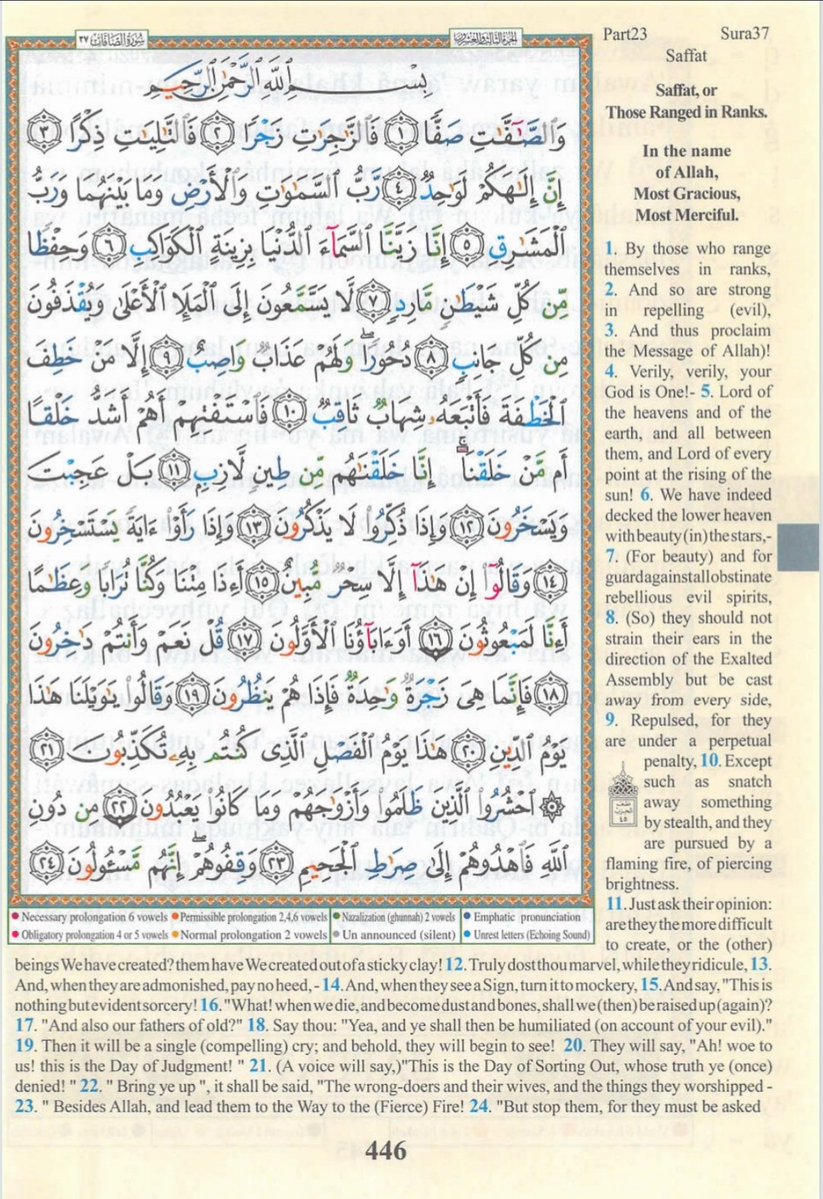 Part23 Sura37
Saffat
Saffat, or
Those Ranged in Ranks.
In the name
of Allah,
Most Gracious,
Most Merciful.
سُورَةُ الصَّافَّاتِ ٣٧
الجزء الثالث والعشرون
بِسْمِ اللَّهِ الرَّحْمَٰنِ الرَّحِيمِ
وَالصَّٰٓفَّٰتِ صَفًّا ١ فَالزَّٰجِرَٰتِ زَجْرًا ٢ فَالتَّٰلِيَٰتِ ذِكْرًا ٣
إِنَّ إِلَٰهَكُمْ لَوَٰحِدٌ ٤ رَّبُّ السَّمَٰوَٰتِ وَالْأَرْضِ وَمَا بَيْنَهُمَا وَرَبُّ
الْمَشَٰرِقِ ٥ إِنَّا زَيَّنَّا السَّمَآءَ الدُّنْيَا بِزِينَةٍ الْكَوَاكِبِ ٦ وَحِفْظًا
مِّن كُلِّ شَيْطَٰنٍ مَّارِدٍ ٧ لَّا يَسَّمَّعُونَ إِلَى الْمَلَإِ الْأَعْلَىٰ وَيُقْذَفُونَ
مِن كُلِّ جَانِبٍ ٨ دُحُورًا ۖ وَلَهُمْ عَذَابٌ وَاصِبٌ ٩ إِلَّا مَنْ خَطِفَ
الْخَطْفَةَ فَأَتْبَعَهُۥ شِهَابٌ ثَاقِبٌ ١٠ فَاسْتَفْتِهِمْ أَهُمْ أَشَدُّ خَلْقًا
أَم مَّنْ خَلَقْنَآ ۚ إِنَّا خَلَقْنَٰهُم مِّن طِينٍ لَّازِبٍ ١١ بَلْ عَجِبْتَ
وَيَسْخَرُونَ ١٢ وَإِذَا ذُكِّرُوا۟ لَا يَذْكُرُونَ ١٣ وَإِذَا رَأَوْا۟ ءَايَةً يَسْتَسْخِرُونَ
١٤ وَقَالُوٓا۟ إِنْ هَٰذَآ إِلَّا سِحْرٌ مُّبِينٌ ١٥ أَءِذَا مِتْنَا وَكُنَّا تُرَابًا وَعِظَٰمًا
أَءِنَّا لَمَبْعُوثُونَ ١٦ أَوَءَابَآؤُنَا الْأَوَّلُونَ ١٧ قُلْ نَعَمْ وَأَنتُمْ دَٰخِرُونَ
١٨ فَإِنَّمَا هِيَ زَجْرَةٌ وَٰحِدَةٌ فَإِذَا هُمْ يَنظُرُونَ ١٩ وَقَالُوا۟ يَٰوَيْلَنَا هَٰذَا
يَوْمُ الدِّينِ ٢٠ هَٰذَا يَوْمُ الْفَصْلِ الَّذِي كُنتُم بِهِۦ تُكَذِّبُونَ ٢١
۞ احْشُرُوا۟ الَّذِينَ ظَلَمُوا۟ وَأَزْوَٰجَهُمْ وَمَا كَانُوا۟ يَعْبُدُونَ ٢٢ مِن دُونِ
اللَّهِ فَاهْدُوهُمْ إِلَىٰ صِرَٰطِ الْجَحِيمِ ٢٣ وَقِفُوهُمْ ۖ إِنَّهُم مَّسْـُٔولُونَ ٢٤
Necessary prolongation 6 vowels Permissible prolongation 2,4,6 vowels Nazalization (ghunnah) 2 vowels Emphatic pronunciation
Obligatory prolongation 4 or 5 vowels Normal prolongation 2 vowels Un announced (silent) Unrest letters (Echoing Sound)
1. By those who range
themselves in ranks,
2. And so are strong
in repelling (evil),
3. And thus proclaim
the Message of Allah)!
4. Verily, verily, your
God is One!- 5. Lord of
the heavens and of the
earth, and all between
them, and Lord of every
point at the rising of the
sun! 6. We have indeed
decked the lower heaven
with beauty (in) the stars,-
7. (For beauty) and for
guard against all obstinate
rebellious evil spirits,
8. (So) they should not
strain their ears in the
direction of the Exalted
Assembly but be cast
away from every side,
9. Repulsed, for they
are under a perpetual
penalty, 10. Except
such as snatch
away something
by stealth, and they
are pursued by a
flaming fire, of piercing
brightness.
11. Just ask their opinion:
are they the more difficult
to create, or the (other)
beings We have created? them have We created out of a sticky clay! 12. Truly dost thou marvel, while they ridicule, 13.
And, when they are admonished, pay no heed, - 14. And, when they see a Sign, turn it to mockery, 15. And say, "This is
nothing but evident sorcery! 16. "What! when we die, and become dust and bones, shall we (then) be raised up (again)?
17. "And also our fathers of old?" 18. Say thou: "Yea, and ye shall then be humiliated (on account of your evil)."
19. Then it will be a single (compelling) cry; and behold, they will begin to see! 20. They will say, "Ah! woe to
us! this is the Day of Judgment! " 21. (A voice will say,)"This is the Day of Sorting Out, whose truth ye (once)
denied! " 22. " Bring ye up ", it shall be said, "The wrong-doers and their wives, and the things they worshipped -
23. " Besides Allah, and lead them to the Way to the (Fierce) Fire! 24. "But stop them, for they must be asked
446